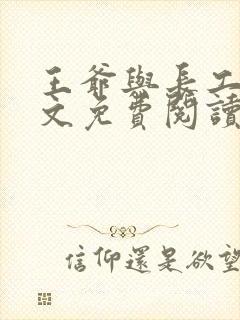 王爺與長工
文免費閱讀
信仰還是欲望